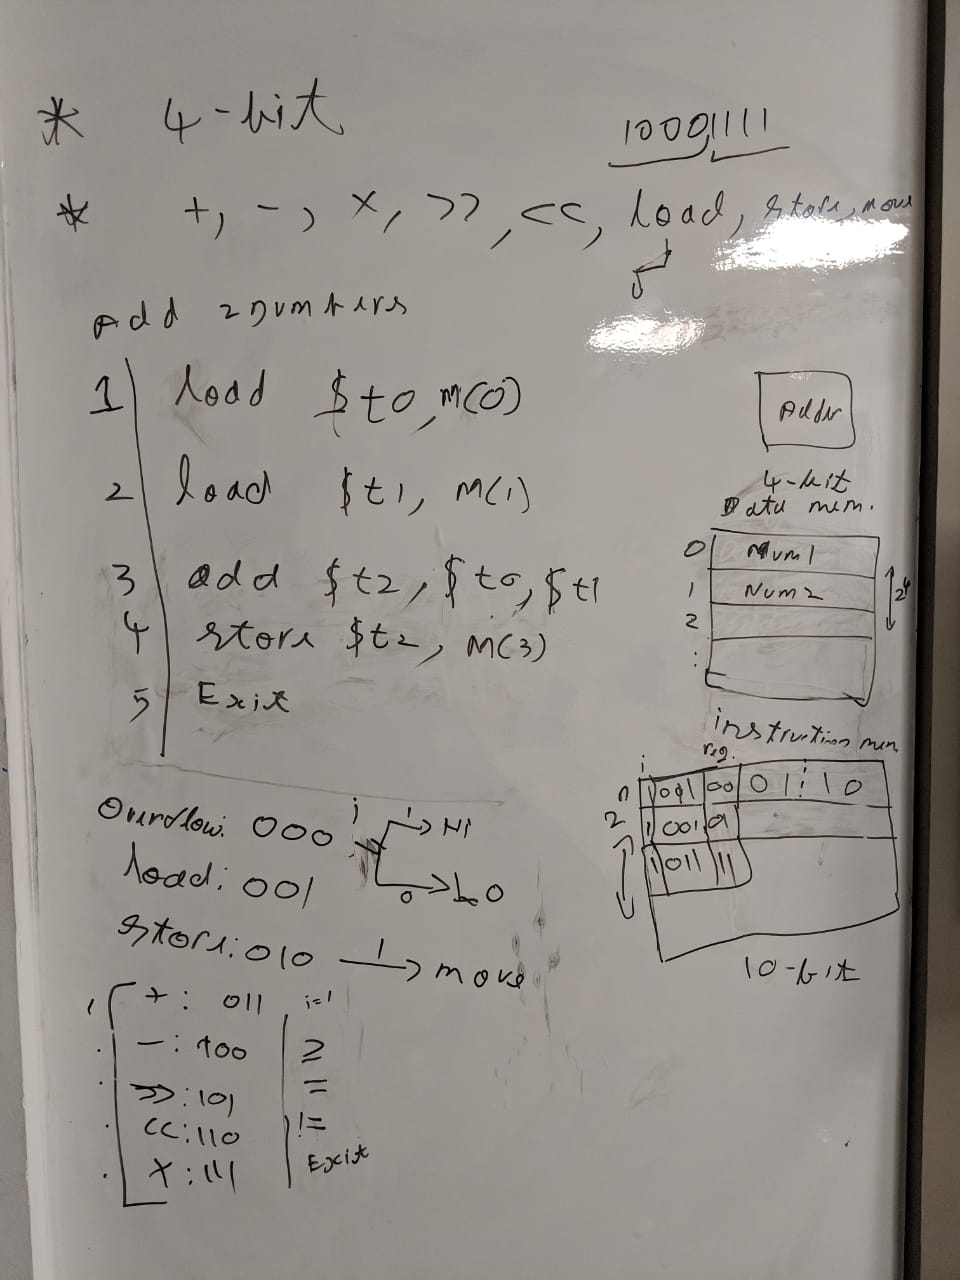 * 4-bit
10001111
* +, -, ×, >>, <<, load, store, move
Add 2 numbers
1 load $t0, M(0)
2 load $t1, M(1)
3 add $t2, $t0, $t1
4 store $t2, M(3)
5 Exit
Addr
4-bit
Data mem.
0 Num1
1 Num2
2
:
2^4
instruction mem
i reg.
1 001 00 01 10
2 1 001 01
1 011 11
10-bit
Overflow: 000 i 1 → Hi
0 → Lo
load: 001
store: 010 1 → move
+: 011 i=1
-: 100 ≥
>>: 101 =
<<: 110 !=
×: 111 Exit